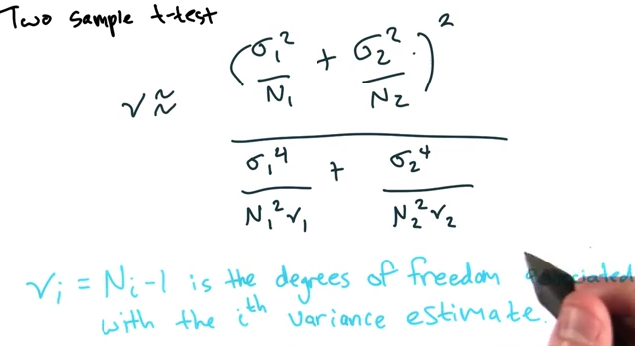 Two sample t-test
ν ≈ (σ₁²/N₁ + σ₂²/N₂)² / (σ₁⁴/(N₁²ν₁) + σ₂⁴/(N₂²ν₂))
νᵢ = Nᵢ-1 is the degrees of freedom associated
with the iᵗʰ variance estimate.